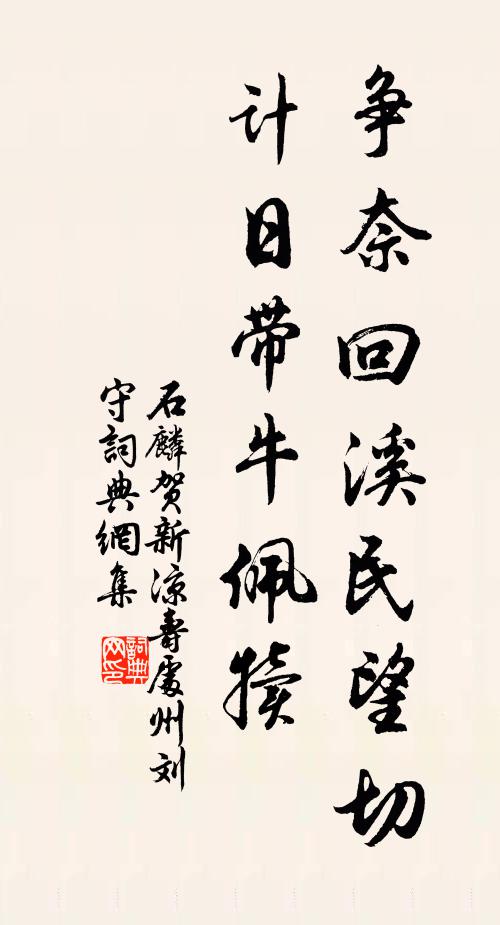 争奈回溪民望切
计日带牛佩犊
石麟贺新凉寿处州刘
守詞典網集
詞典网印